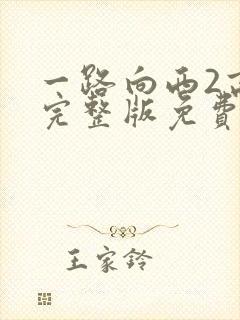 一路向西2
完整版免費
王家铃